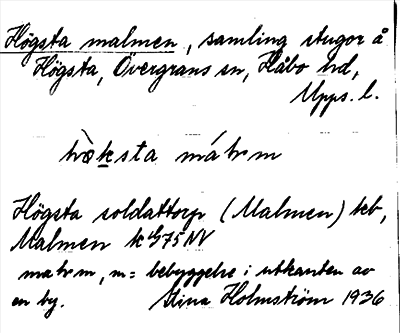 Högsta malmen, samling stugor å
Högsta, Övergrans sn, Håbo hd,
Upps. l.
hò̀ksta málmm
Högsta soldattorp (Malmen) kb,
Malmen k 475 NV
malmm, m = bebyggelse i utkanten av
en by. Stina Holmström 1936